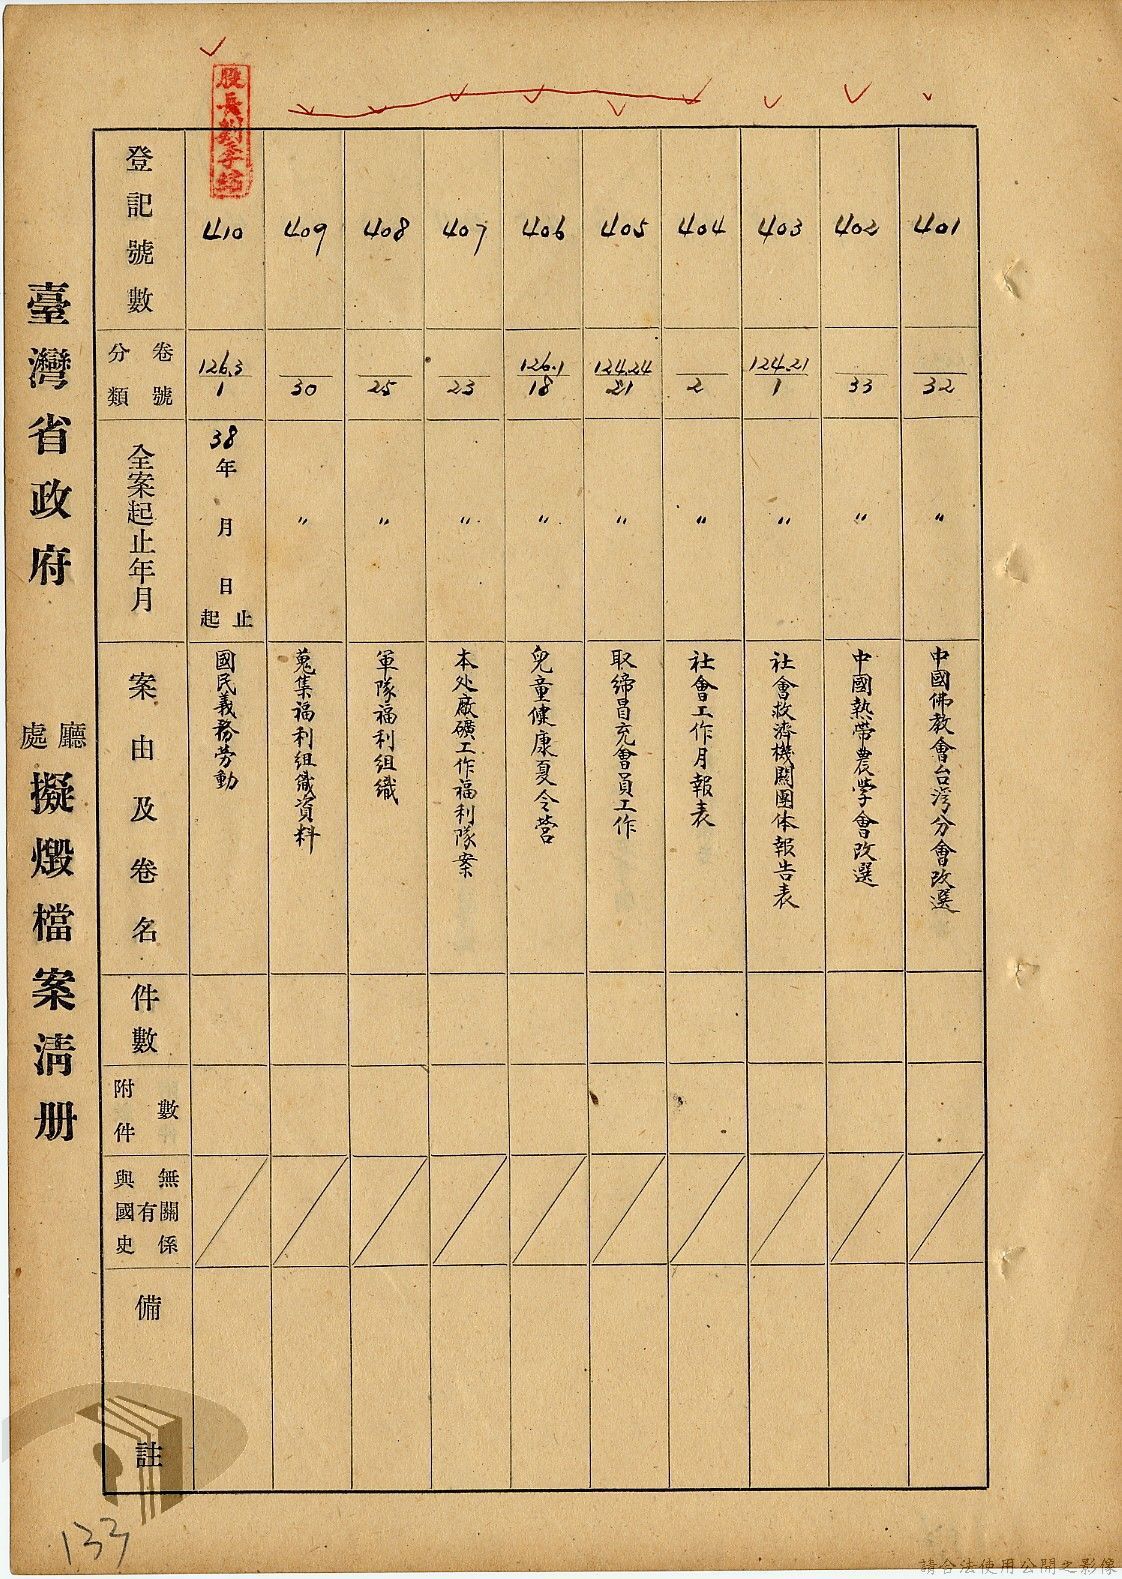 臺灣省政府
處廳
擬燬檔案清册
登記號數
分類
卷號
全案起止年月
案由及卷名
件數
附件
數
與國史
有
無關係
備註
股長劉季
410
126.3
1
38
年
月
日
起止
國民義務勞動
409
30
〃
蒐集福利組織資料
408
25
〃
軍隊福利組織
407
23
〃
本处廠礦工作福利隊案
406
126.1
18
〃
兒童健康夏令营
405
124.24
21
〃
取締冒充會員工作
404
2
〃
社會工作月報表
403
124.21
1
〃
社會救濟機關團体報告表
402
33
〃
中國熱帶農学會改選
401
32
〃
中國佛教會台湾分會改選
133
請合法使用公開之影像